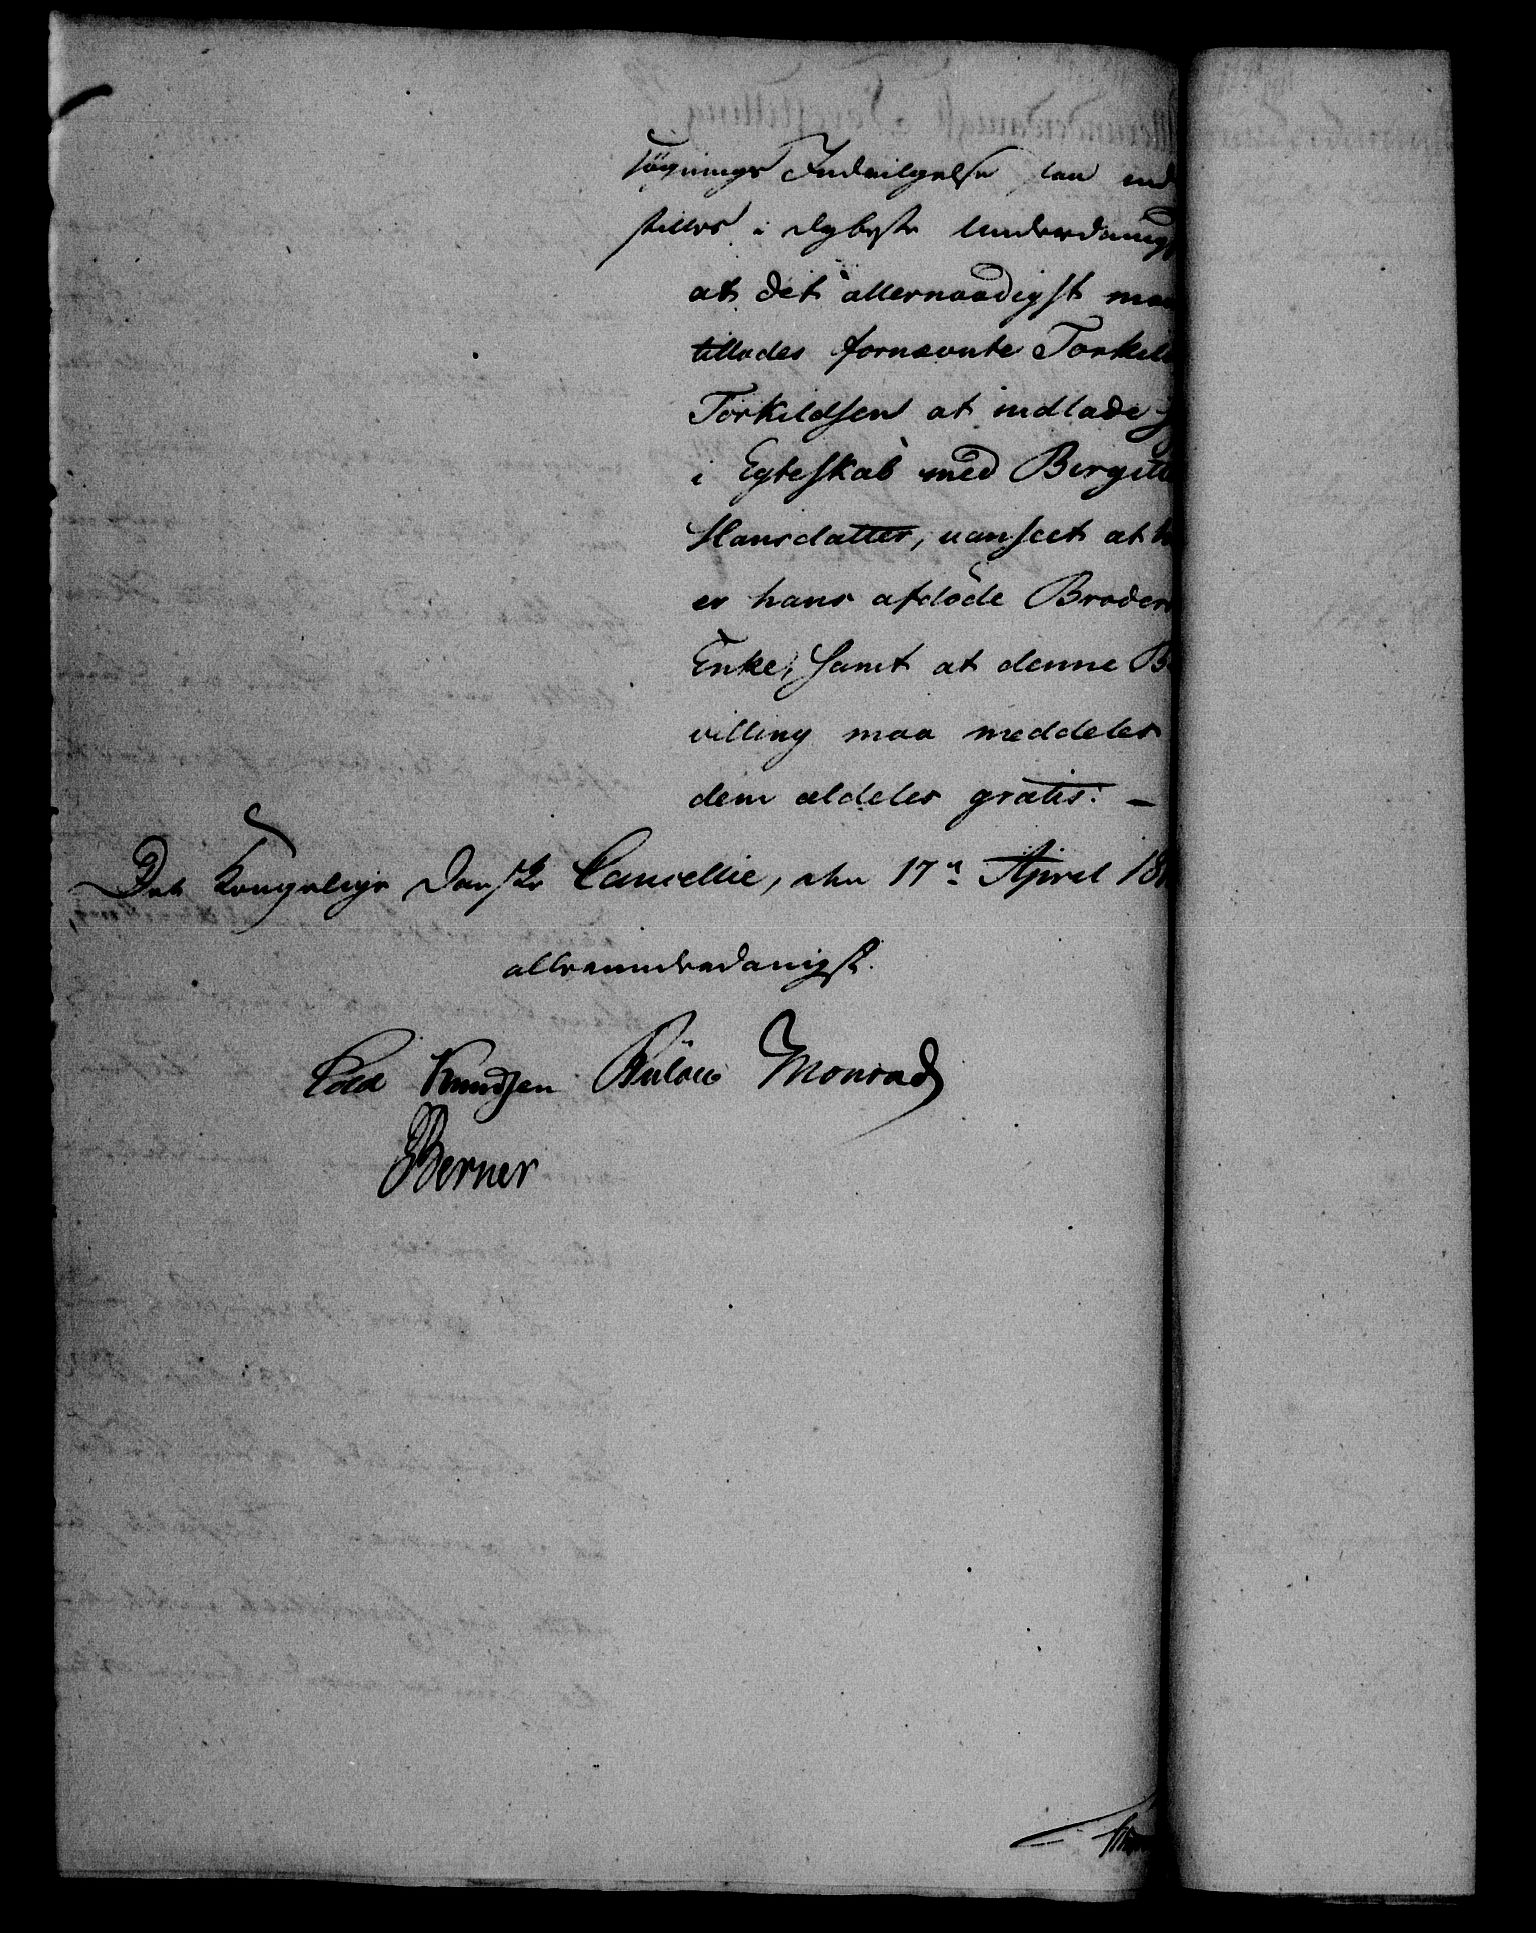 søgnings Indvilgelse, lau ind
stilles i dybeste Underdanigs
at det allernaadigst maa
tillades fornævnte Torkild
Torkildsen at indlade s
i Egteskab med Birgitte
Hansdatter, uanseet at h
er hans afdøde Broders
Enke, samt at denne Be
villing maa meddeles
dem aldeles gratis. –
Det Kongelige Danske Cancellie, den 17n April 18
allerunderdanigst.
Cold Knudsen Bülow Monrad
Berner